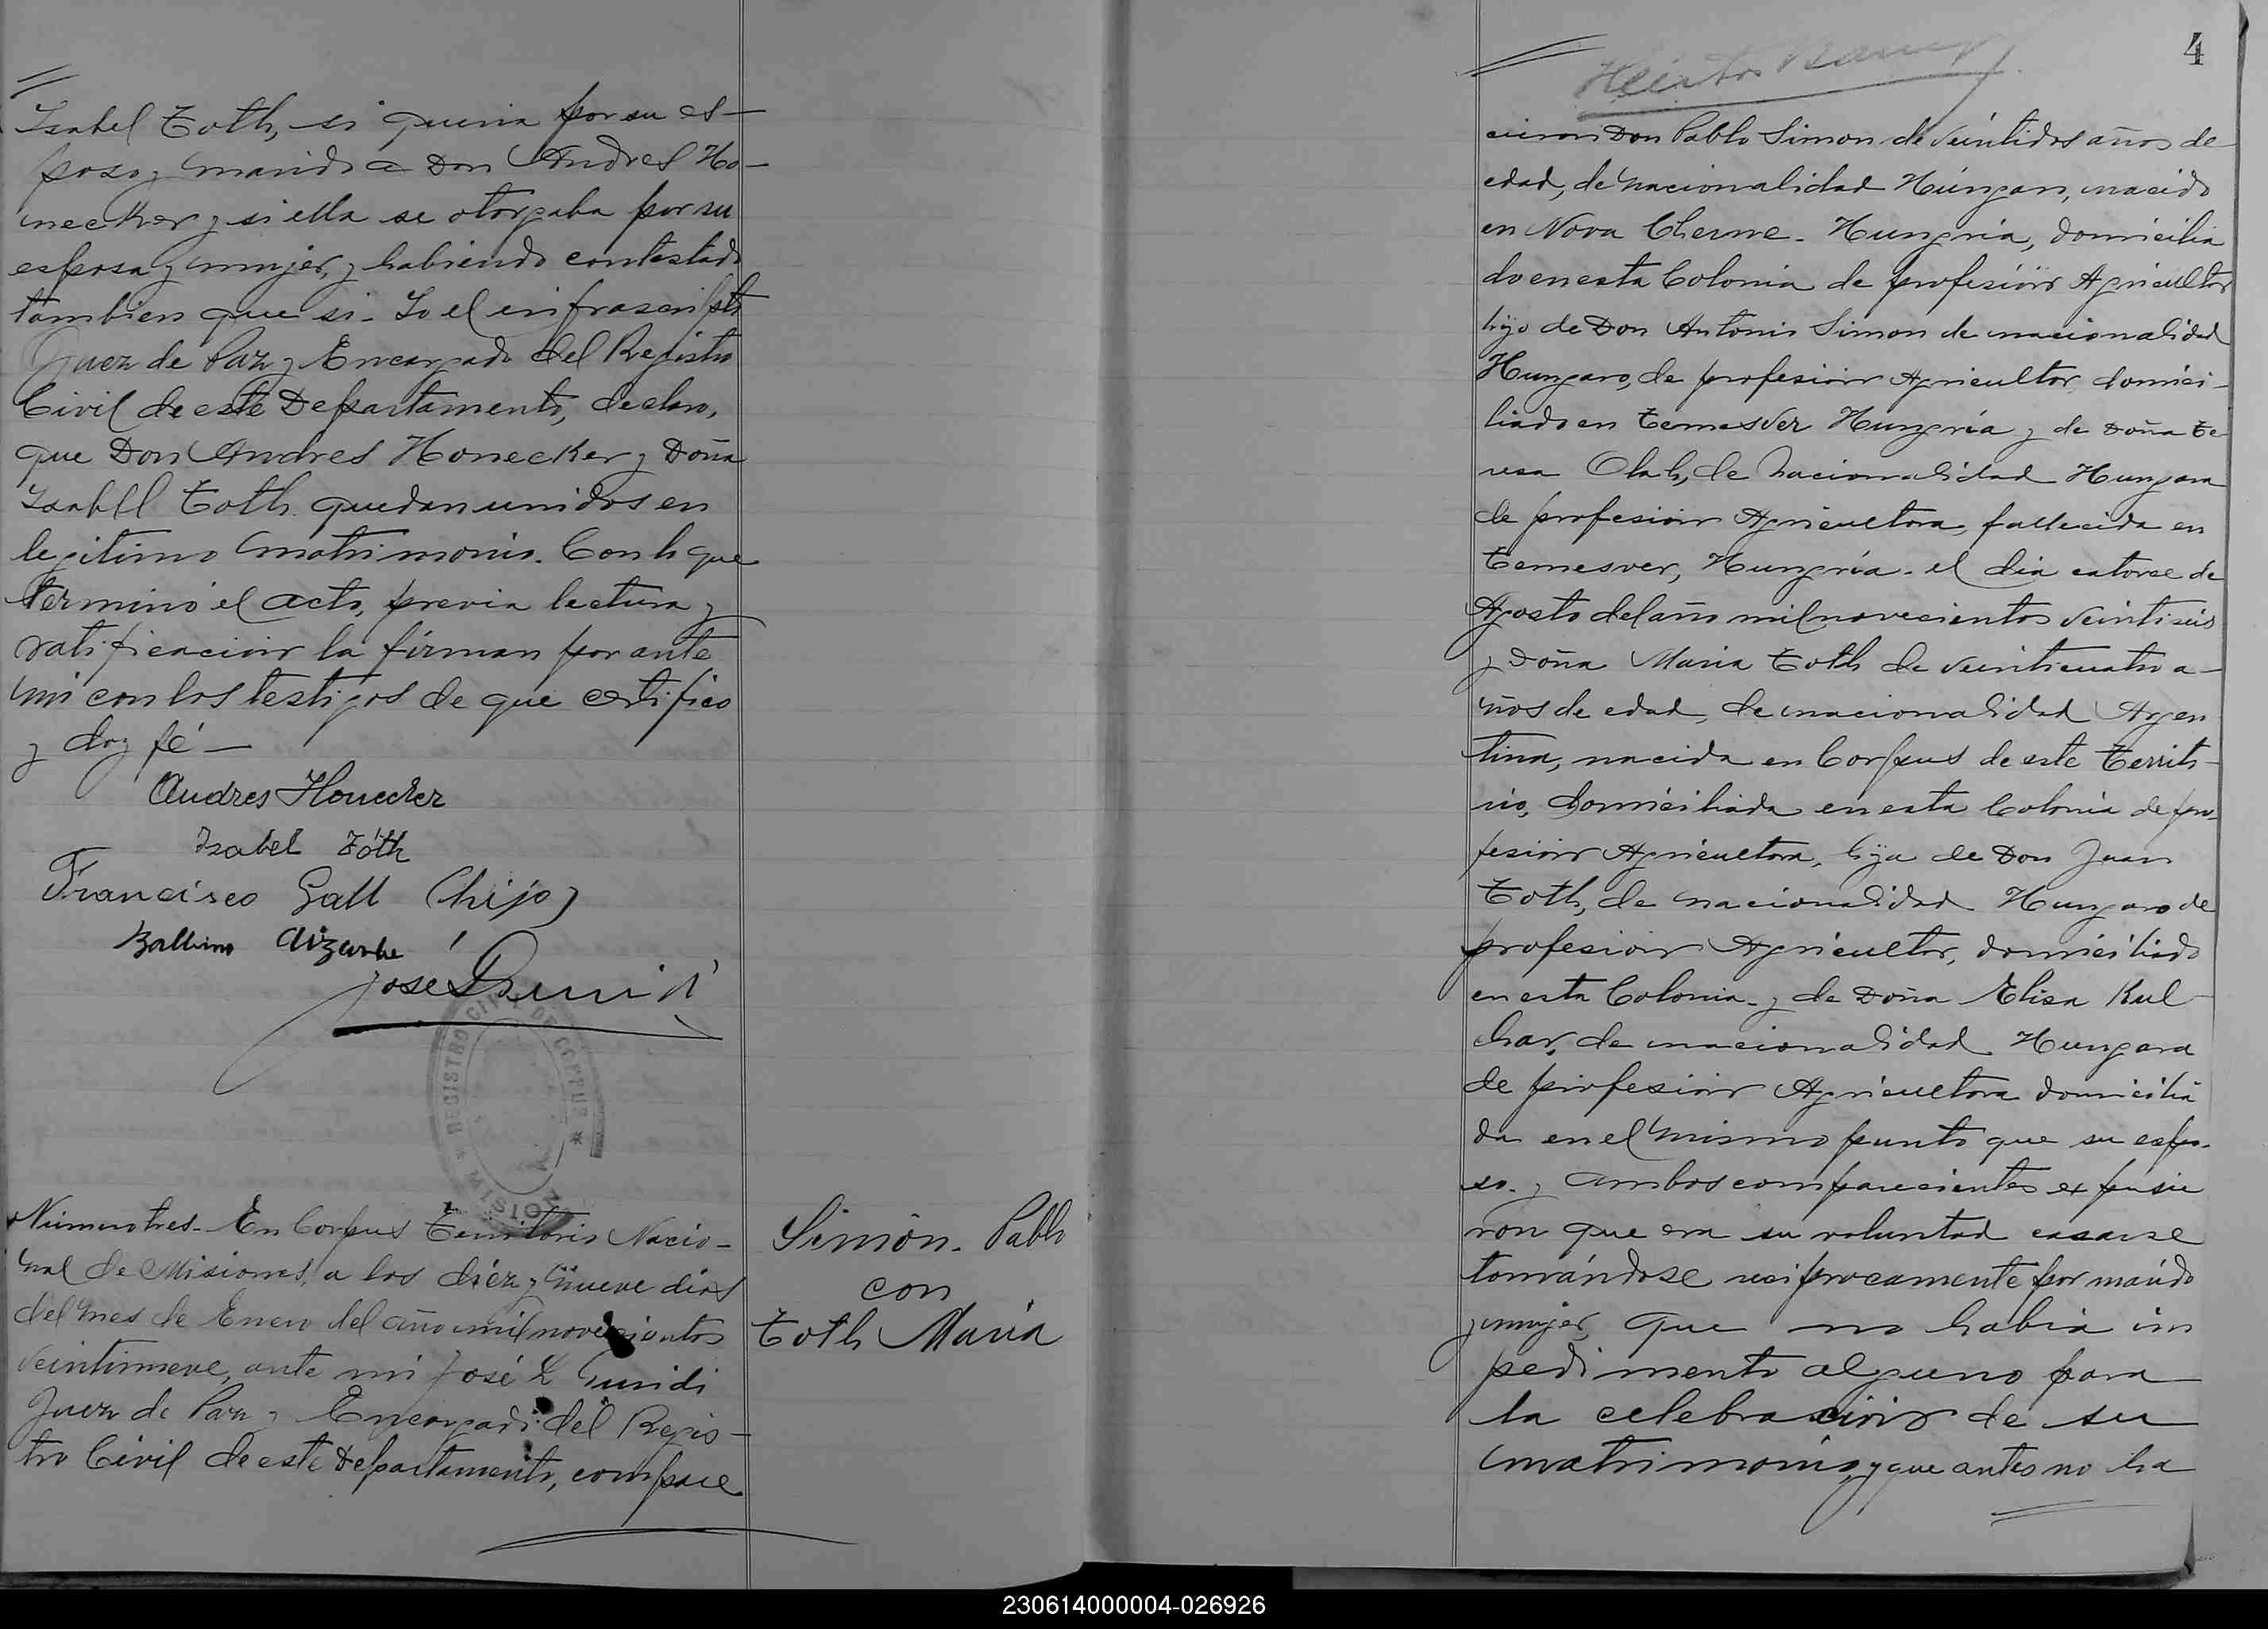 Isabel Toth, si queria por su es-
poso y marido a Don Andres Ho-
necker y si ella se otorgaba por su
esposa y mujer, y habiendo contestado
tambien que si. Yo el infrascripto
Juez de Paz y Encargado del Registro
Civil de este Departamento, declaro,
que Don Andres Honecker y Doña
Isabel Toth quedan unidos en
legitimo matrimonio. Con lo que
terminó el acto, previa lectura y
ratificacion la firman por ante
mi con los testigos de que certifico
y doy fé —
Andres Honecker
Isabel Tóth
Francisco Gall (hijo)
Balbino
José L Guridi
REGISTRO CIVIL DE CORPUS
MISIONES
Número tres. En Corpus Territorio Nacio-
nal de Misiones, a los diez y nueve dias
del mes de Enero del año mil novecientos
veintinueve, ante mi José L Guridi
Juez de Paz y Encargado del Regis-
tro Civil de este Departamento, compare
Simón. Pablo
con
Toth Maria
4
cieron Don Pablo Simon de veintidos años de
edad, de nacionalidad Húngaro, nacido
en Nova Cherne. Hungria, domicilia
do en esta Colonia de profesión Agricultor
hijo de Don Antonio Simon de nacionalidad
Hungaro, de profesion Agricultor, domici-
liado en Temesver Hungría y de Doña Te
resa Olah, de nacionalidad Hungara
de profesion Agricultora, fallecida en
Temesver, Hungría. el dia catorce de
Agosto del año mil novecientos veintiseis
y Doña Maria Toth de veinticuatro a-
ños de edad, de nacionalidad Argen
tina, nacida en Corpus de este Territo-
rio, domiciliada en esta Colonia de pro
fesion Agricultora, hija de Don Juan
Toth, de nacionalidad Hungaro de
profesion Agricultor, domiciliado
en esta Colonia. y de Doña Elisa Kul-
char, de nacionalidad Hungara
de profesion Agricultora domicilia
da en el mismo punto que su espo-
so. y ambos comparecientes expusie
ron que era su voluntad casarse
tomándose reciprocamente por marido
y mujer, que no habia im
pedimento alguno para
la celebración de su
matrimonio, y que antes no ha
230614000004-026926